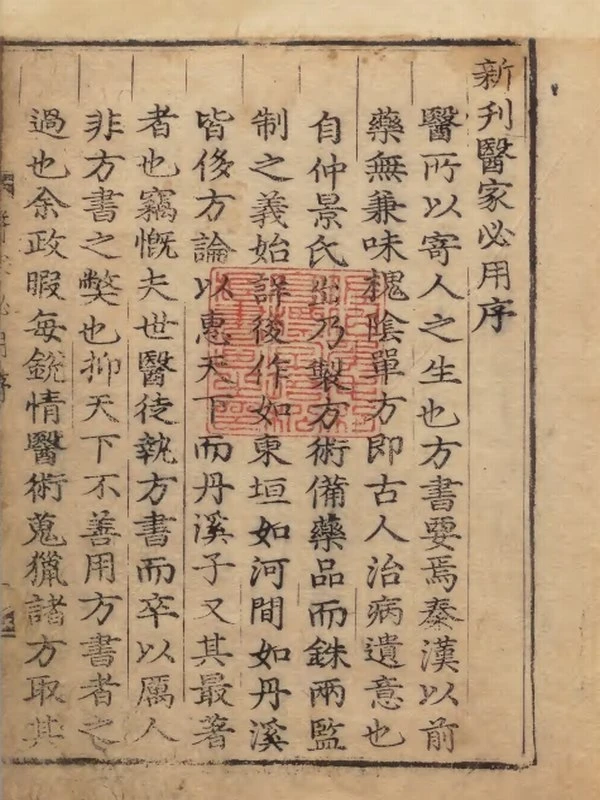 新刊醫家必用序
醫所以寄人之生也方書要焉秦漢以前
藥無兼味槐陰單方即古人治病遺意也
自仲景氏出乃製方術備藥品而銖兩監
制之義始詳後作如東垣如河間如丹溪
皆俊方論以惠天下而丹溪子又其最著
者也竊慨夫世醫徒執方書而卒以厲人
非方書之獘也抑天下不善用方書者之
過也余政暇每銳情醫術蒐獵諸方取其